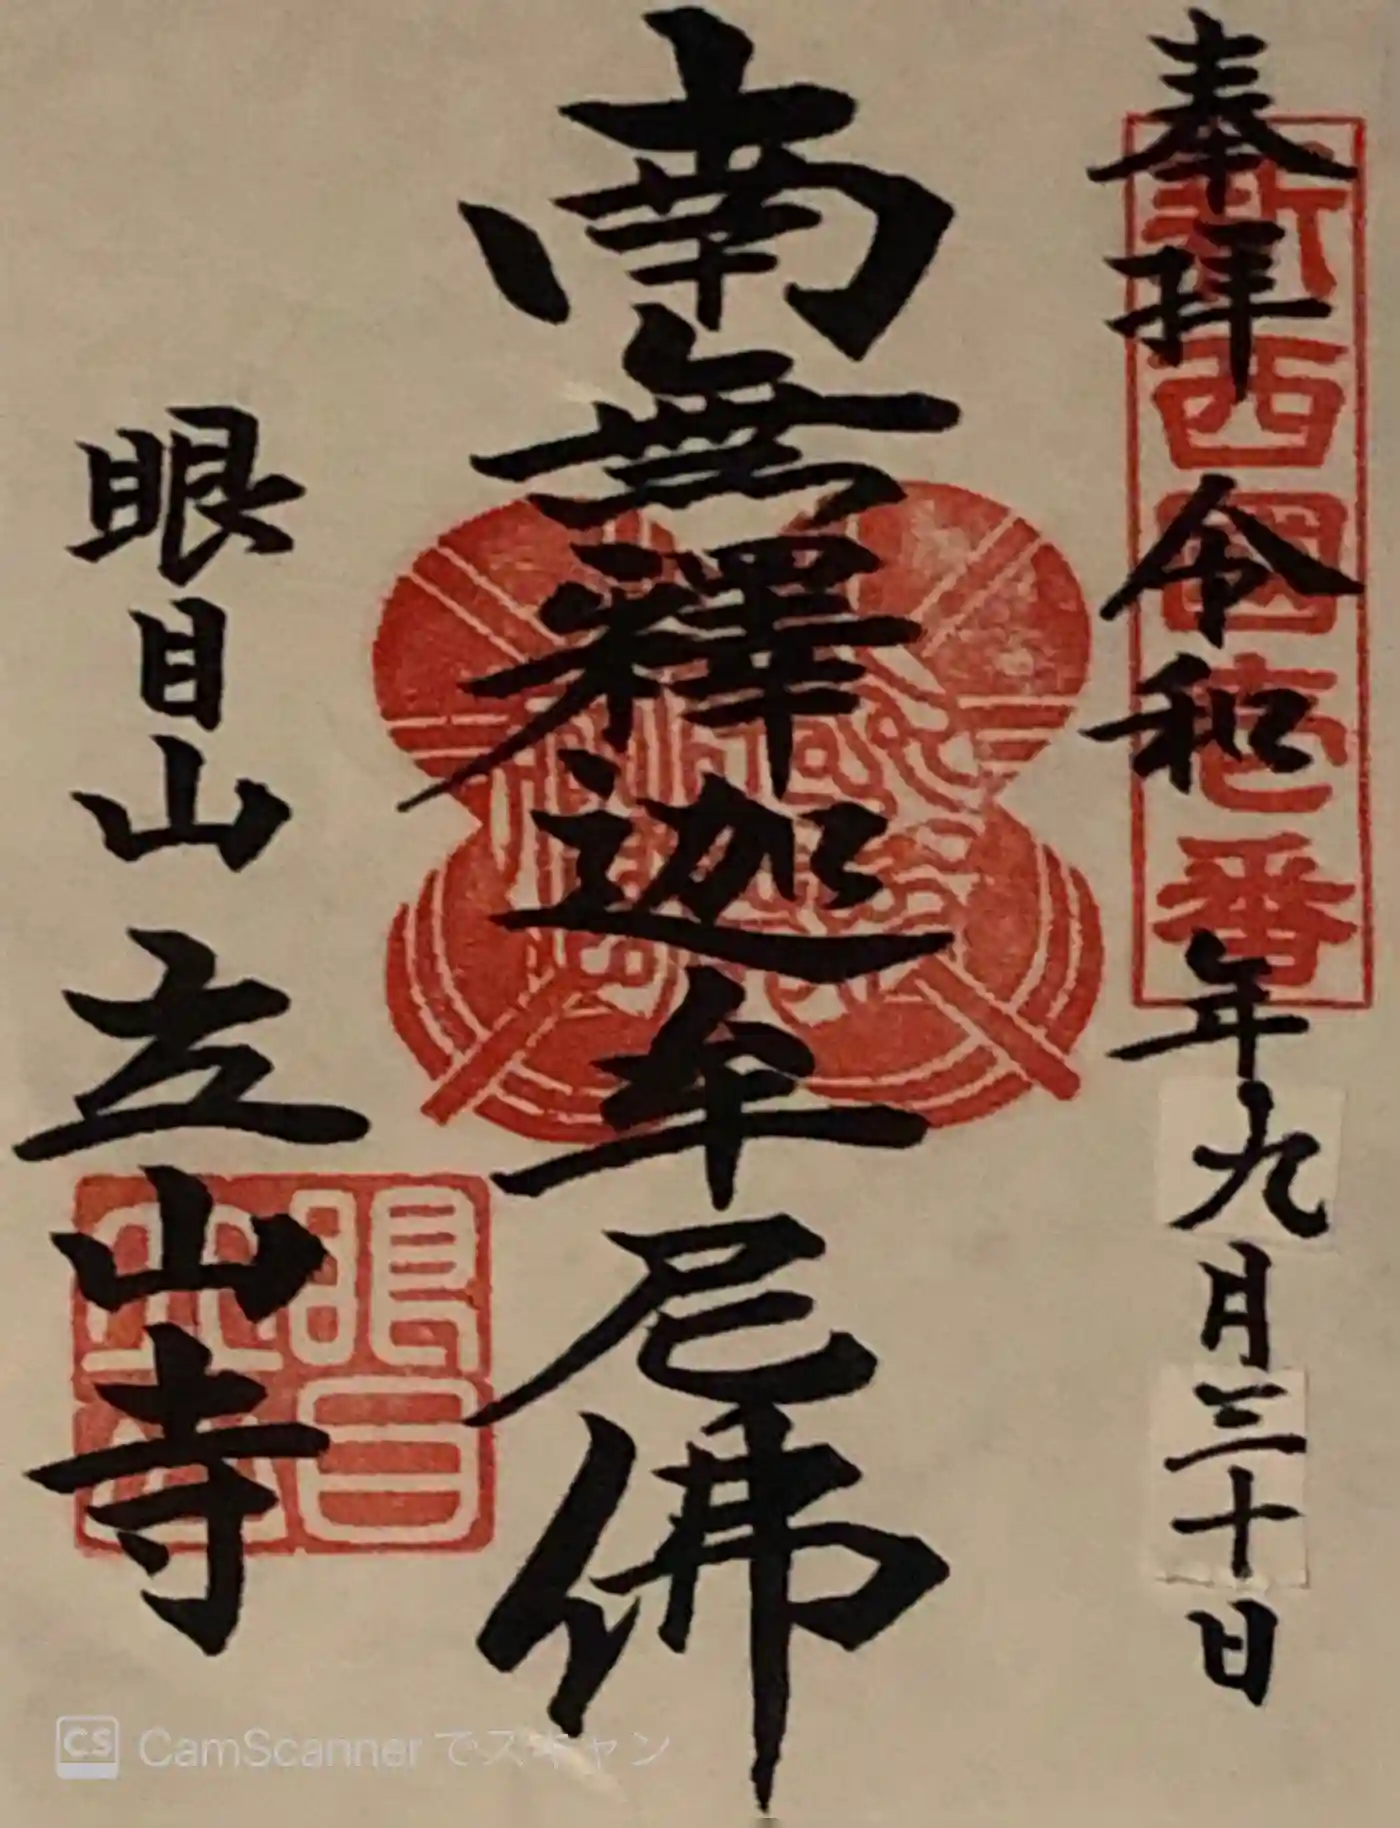 奉拜 令和 年九月三十日
新西國壱番
南無釋迦牟尼佛
眼目山 立山寺
眼目
CS CamScanner でスキャン